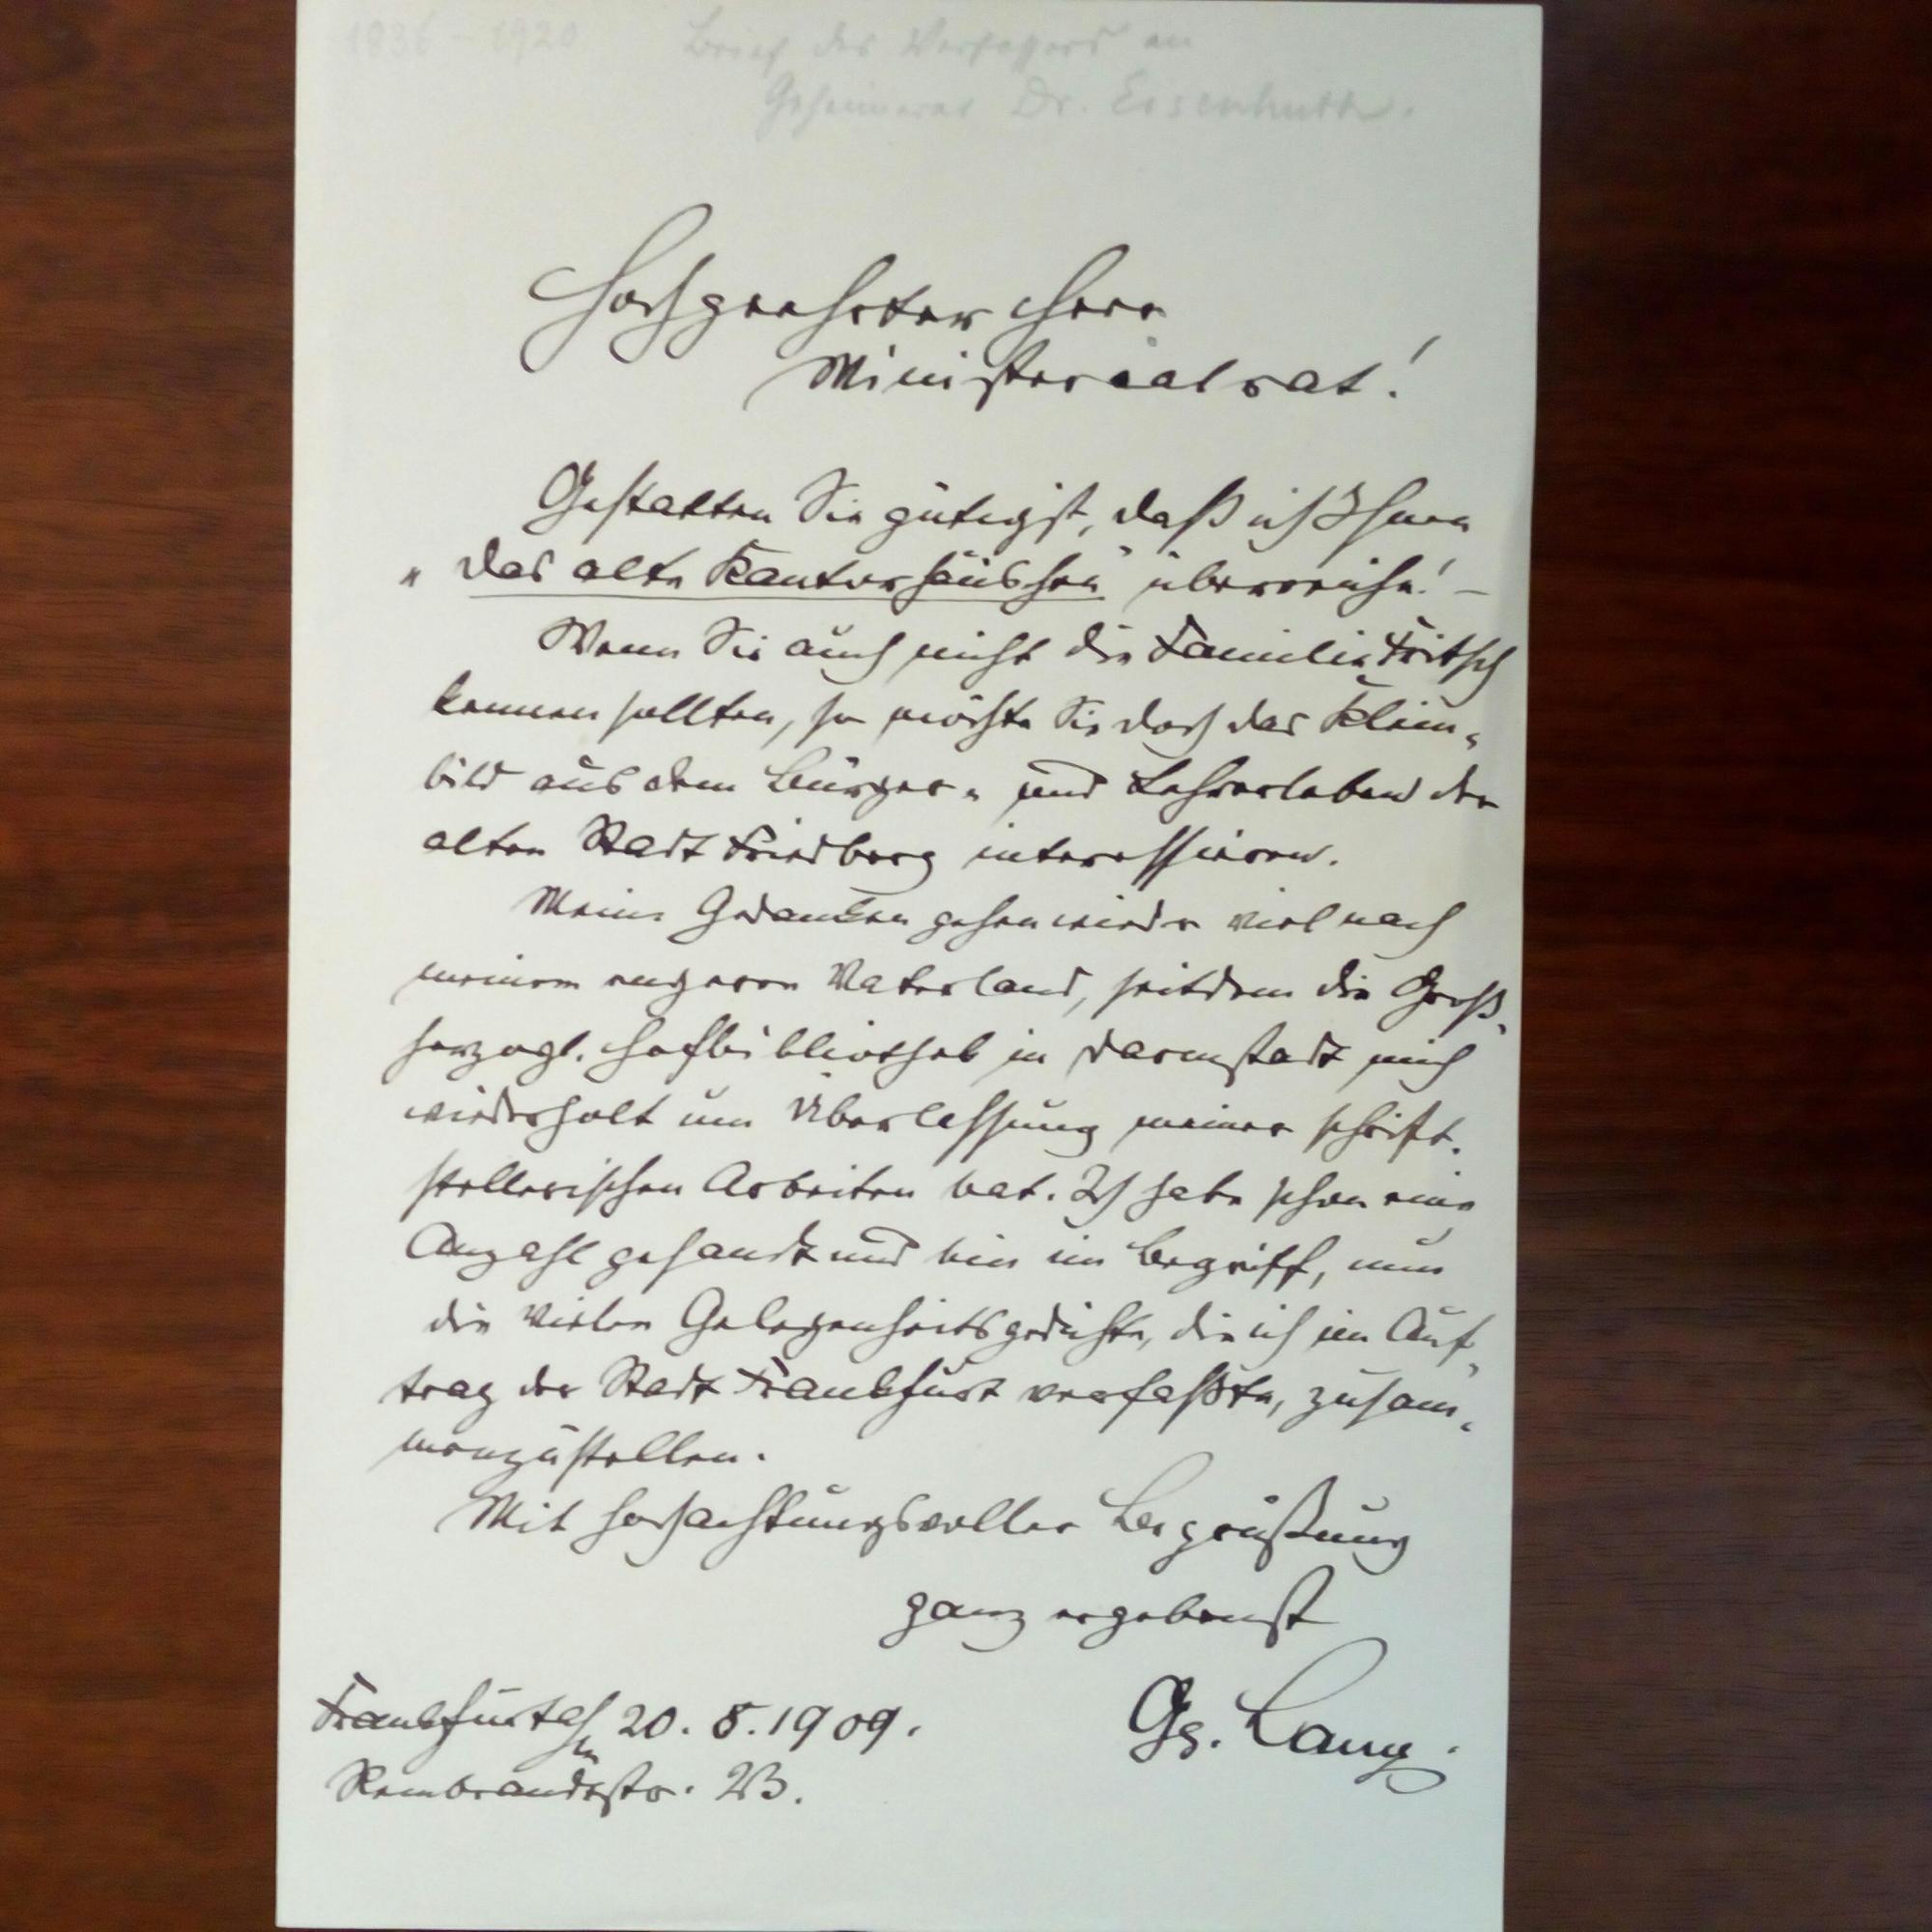 1836 – 1920 Brief des Verfassers an
Geheimerat Dr. Eisenhuth.
Hochgeehrter Herr
Ministerialrat!
Gestatten Sie gütigst, daß ich Ihnen
„Das alte Kantorhäuschen" überreiche! –
Wenn Sie auch nicht die Familie Fritsch
kennen sollten, so möchte Sie doch das Klein-
bild aus dem Bürger- und Lehrerleben der
alten Stadt Friedberg interessieren.
Meine Gedanken gehen wieder viel nach
meinem engeren Vaterland, seitdem die Groß-
herzogl. Hofbibliothek in Darmstadt mich
wiederholt um Überlassung meiner schrift-
stellerischen Arbeiten bat. Ich habe schon eine
Anzahl gesandt und bin im Begriff, nun
die vielen Gelegenheitsgedichte, die ich im Auf-
trag der Stadt Frankfurt verfaßte, zusam-
menzustellen.
Mit hochachtungsvoller Begrüßung
ganz ergebenst
Frankfurt a/m 20. 8. 1909. Gg. Lang.
Rembrandtstr. 23.